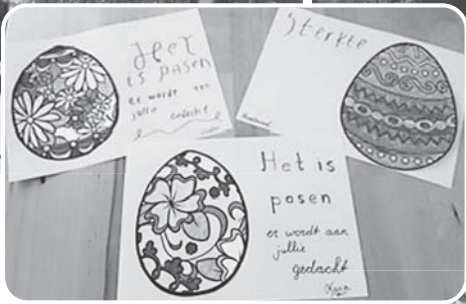 Het
is pasen
er wordt aan
jullie gedacht
Sterkte
Het is
pasen
er wordt aan
jullie
gedacht